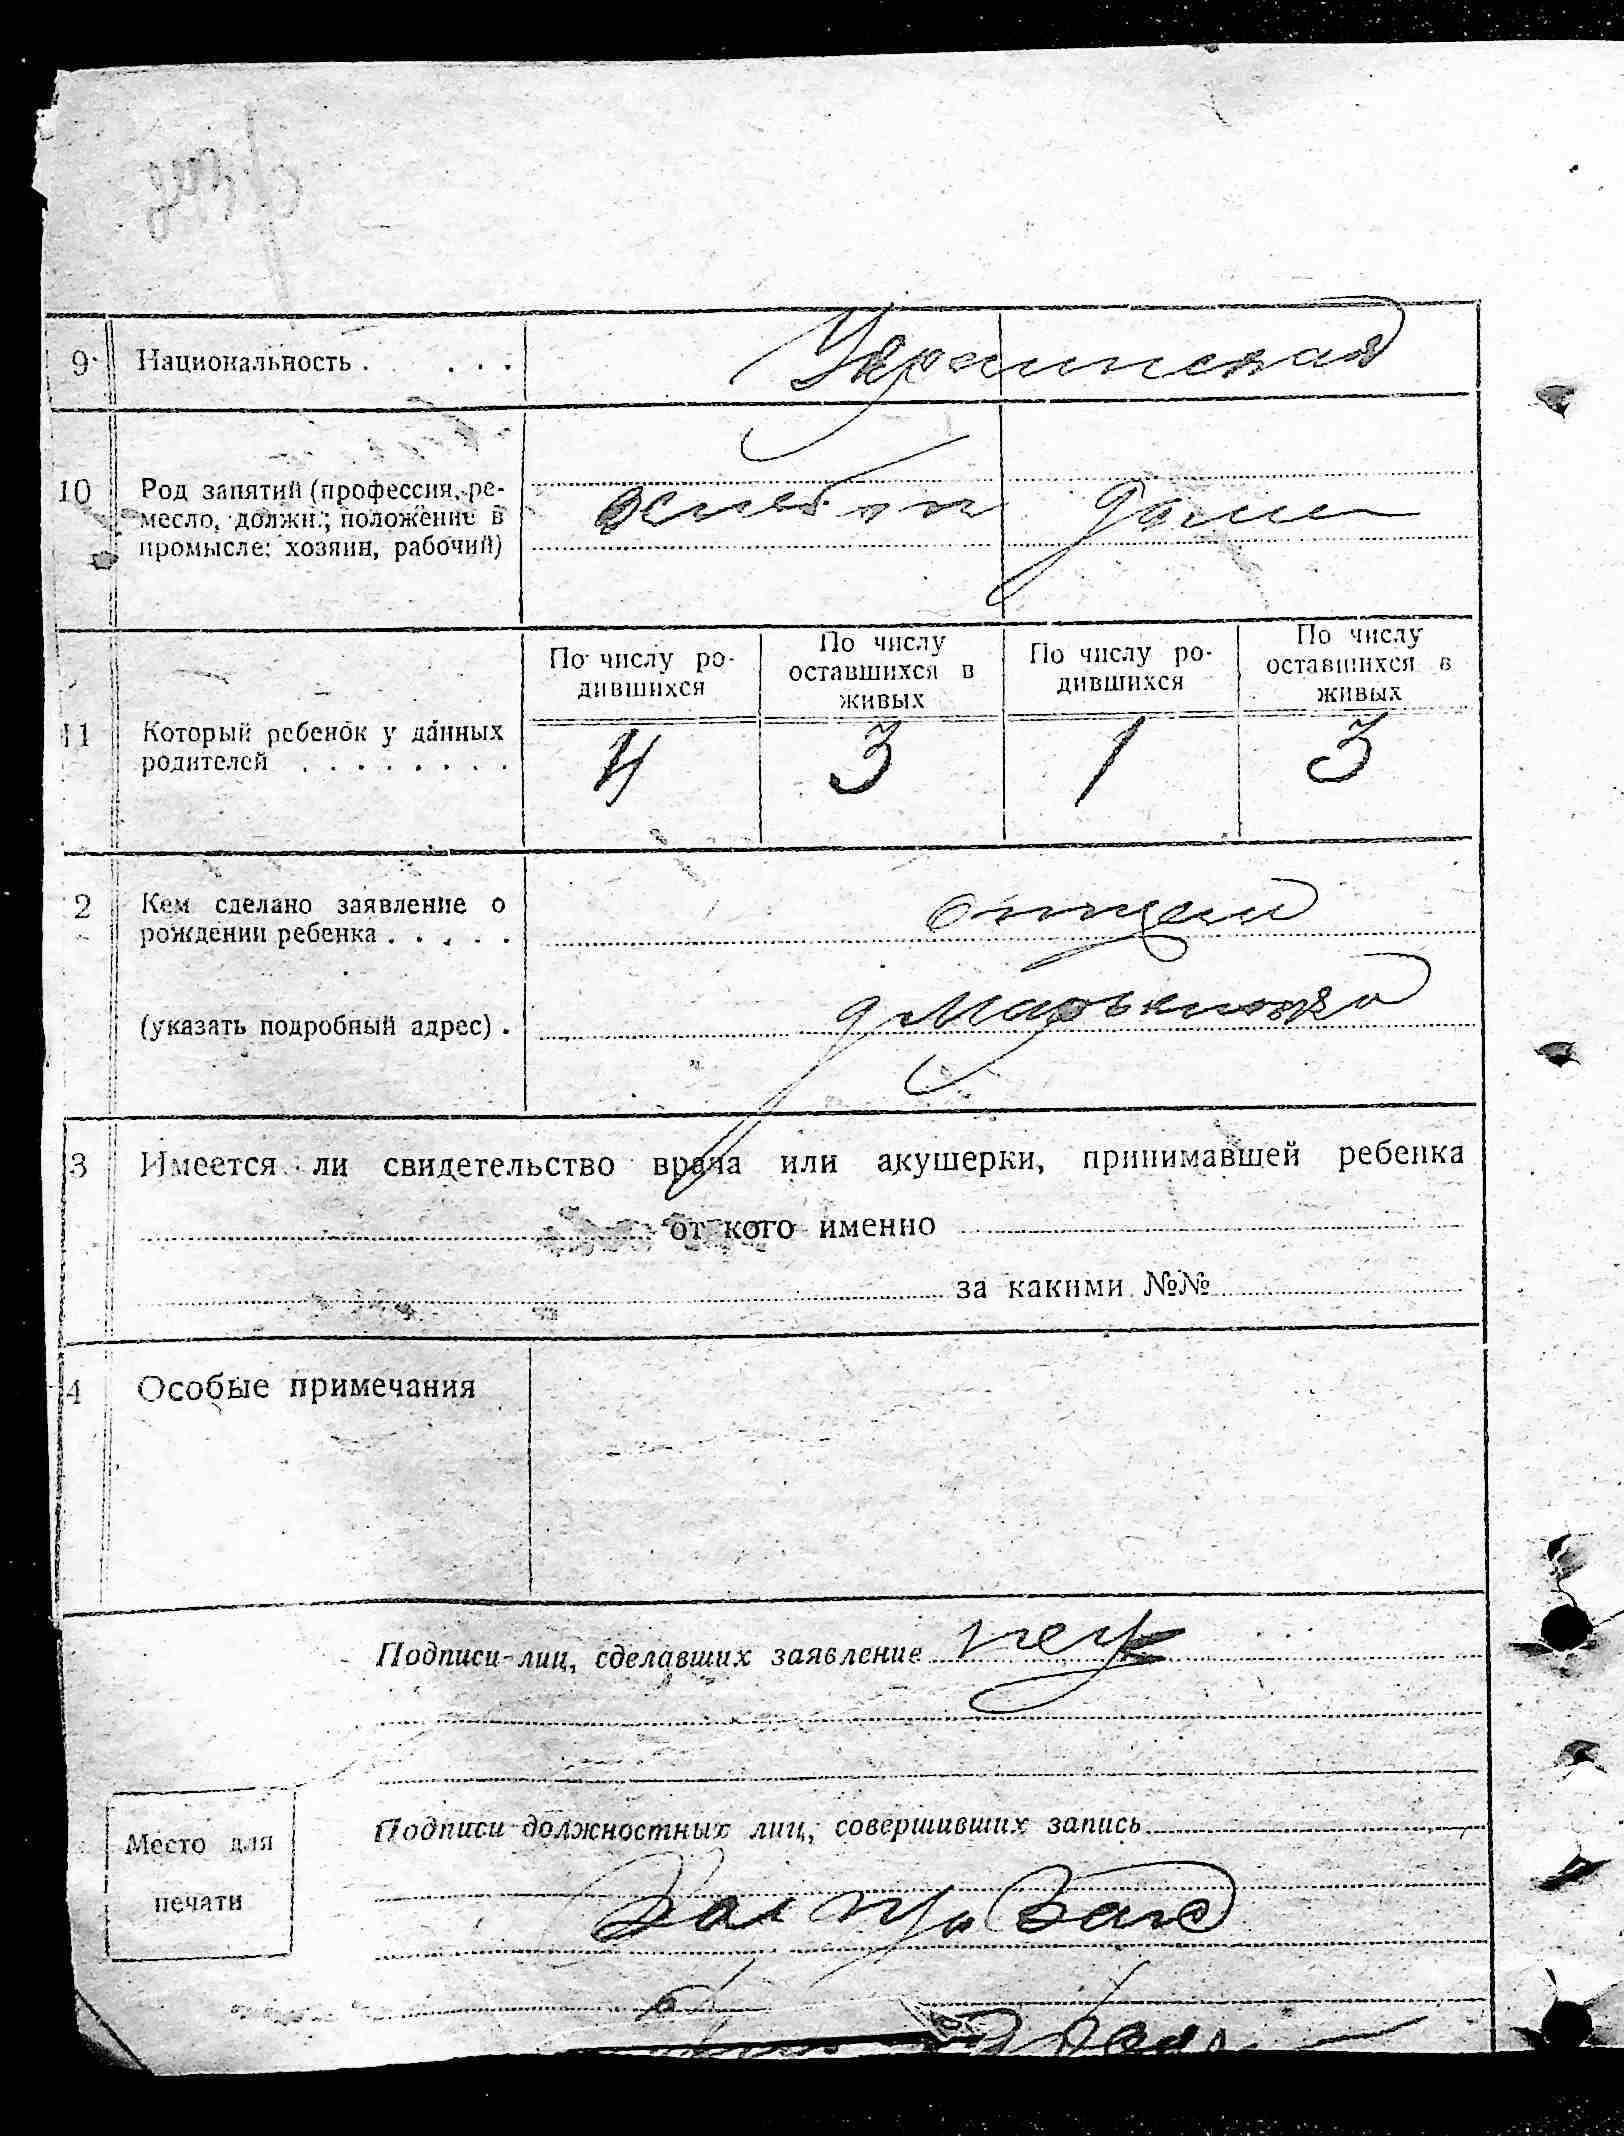 9 Национальность . . . . Украинская
10 Род занятий (профессия, ре-
месло, должн.; положение в
промысле: хозяин, рабочий)
дома
По числу ро-
дившихся
По числу
оставшихся в
живых
По числу ро-
дившихся
По числу
оставшихся в
живых
11 Который ребенок у данных
родителей . . . . . . . .
4 3 1 3
2 Кем сделано заявление о
рождении ребенка . . . . . отцем
(указать подробный адрес) . д Марьиновка
3 Имеется ли свидетельство врача или акушерки, принимавшей ребенка
от кого именно
за какими №№
4 Особые примечания
Подписи лиц, сделавших заявление
Подписи должностных лиц, совершивших запись
Место для
печати